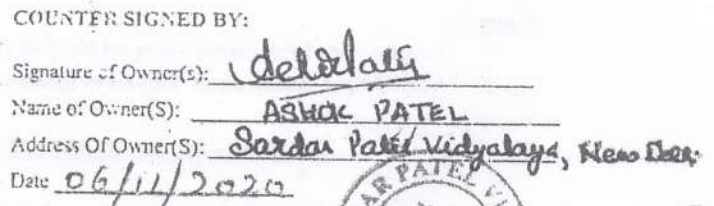 COUNTER SIGNED BY:
Signature of Owner(s):
Name of Owner(S): ASHOK PATEL
Address Of Owner(S): Sardar Patel Vidyalaya, New Delhi
Date 06/11/2020
AR PATEL VI